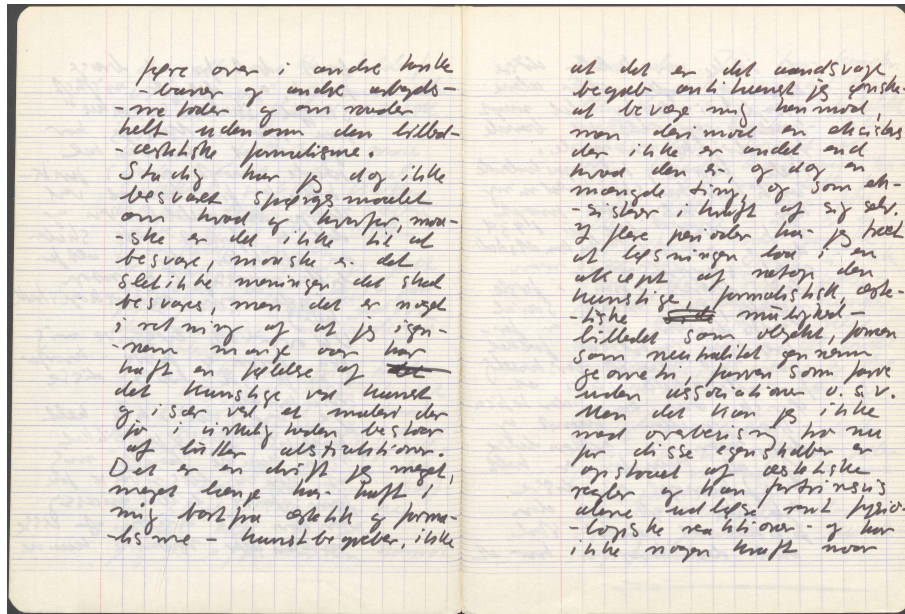 føre over i andre tanke
-baner og andre arbejds-
-metoder og om rander
helt udenom den billed-
-æstetiske formalisme.
Stadig har jeg dog ikke
besvaret spørgsmaalet
om hvad og hvorfor, maa-
-ske er det ikke til at
besvare, maaske er det
slet ikke meningen det skal
besvares, men det er noget
i retning af at jeg igen-
-nem mange aar har
haft en følelse af
det kunstige ved kunst
og især ved et maleri der
jo i virkeligheden bestaar
af lutter abstraktioner.
Det er en drift jeg meget,
meget længe har haft i
mig bort fra æstetik og forma-
-lisme – kunstbegreber, ikke
at det er det aandsvage
begreb antikunst jeg ønske-
at bevæge mig hen mod,
men derimod en eksistens
der ikke er andet end
hvad den er, og dog en
mængde ting, og som ek-
-sisterer i kraft af sig selv.
I flere perioder har jeg troet
at løsningen laa i en
accept af netop den
kunstige, formalistisk, æste-
-tiske mulighed –
billedet som objekt, formen
som neutralitet gennem
geometri, farven som farve
uden associationer o.s.v.
Men det kan jeg ikke
med overbevisning tro nu
for disse egenskaber er
opstaaet af æstetiske
regler og kan fortrinsvis
alene udløse rent fysio-
-logiske reaktioner – og har
ikke nogen kraft naar